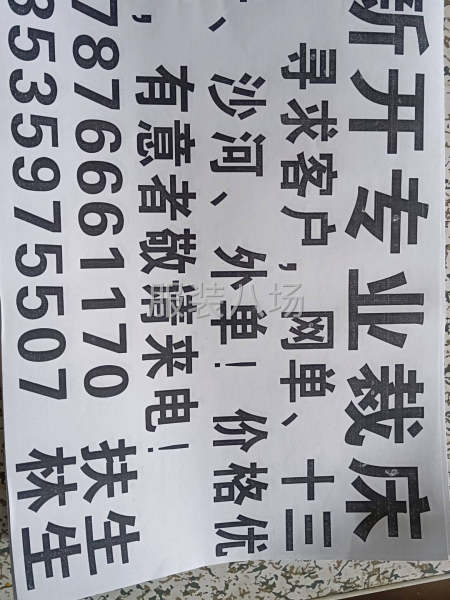 新开专业裁床
寻求客户，网单、十三
、沙河、外单！价格优
，有意者敬请来电！
7876661170 扶生
3535975507 林生
服装八场